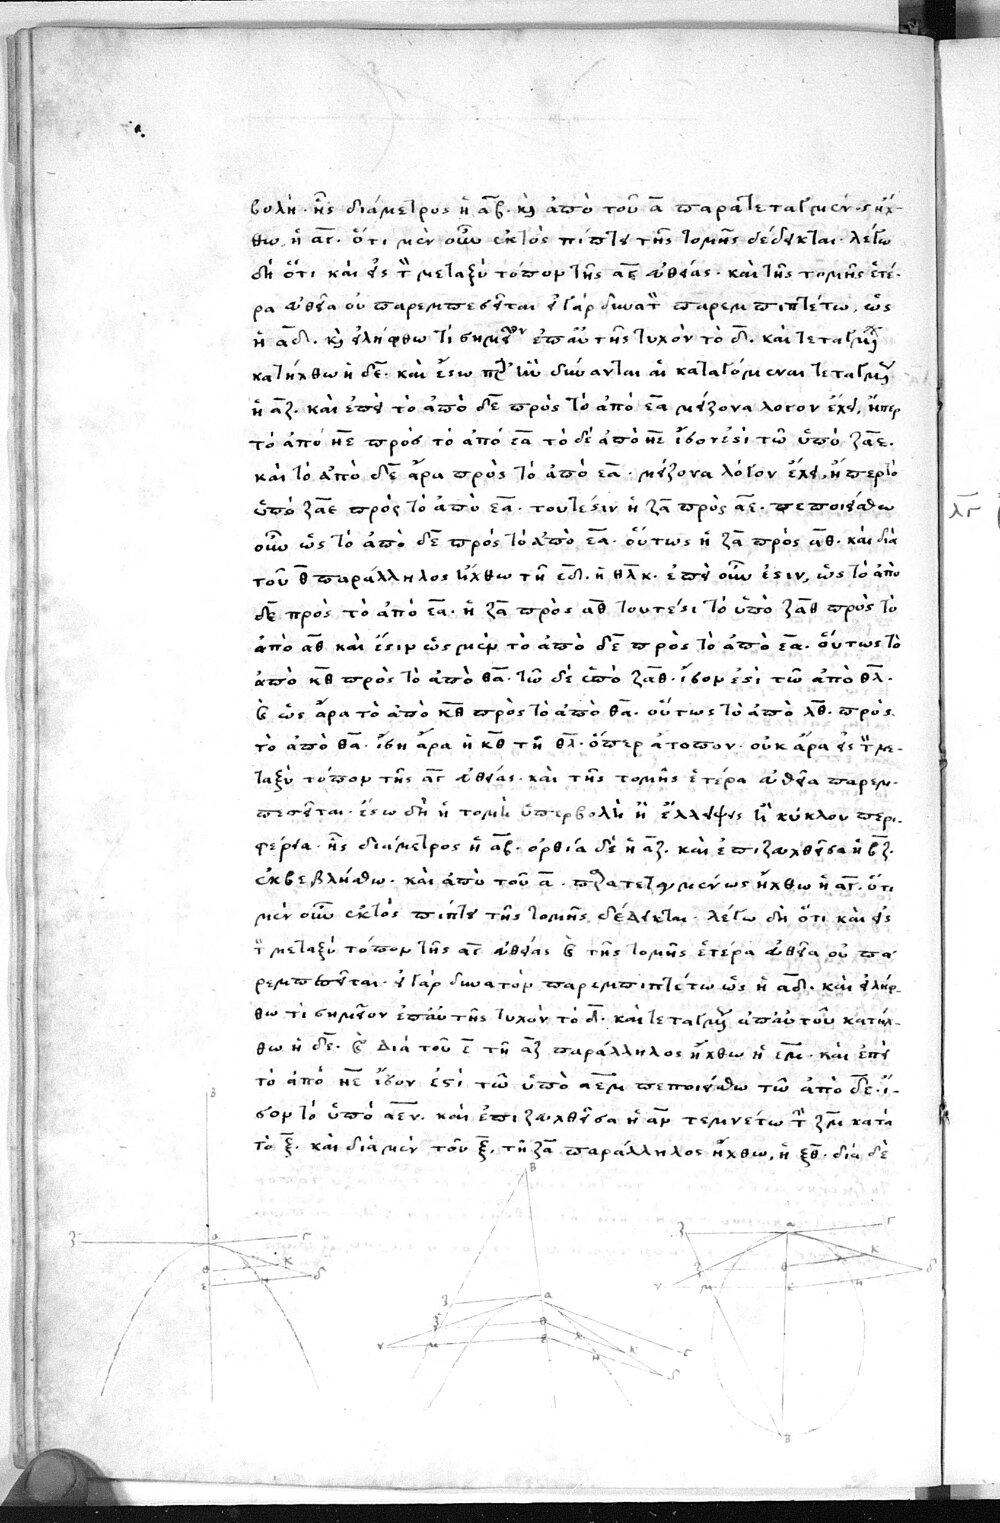 α.
βολὴ· ἧς διάμετρος ἡ α̅β̅· κὶ ἀπὸ τοῦ α̅ παρατεταγμένως ἤχ-
θω ἡ α̅γ̅. ὅτι μὲν οὖν ἐκτὸς πίπτει τῆς τομῆς δέδεικται· λέγω
δὴ ὅτι καὶ εἰς τὸν μεταξὺ τόπον τῆς α̅γ̅ εὐθείας· καὶ τῆς τομῆς ἑτέ-
ρα εὐθεῖα οὐ παρεμπεσεῖται· εἰ γὰρ δυνατὸν παρεμπιπτέτω, ὡς
ἡ α̅δ̅. κὶ εἰλήφθω τὶ σημεῖον ἐπ' αὐτῆς τυχὸν τὸ δ̅. καὶ τεταγμένως
κατήχθω ἡ δ̅ε̅· καὶ ἔστω παρ' ἣν δύνανται αἱ καταγόμεναι τεταγμένως
ἡ α̅ζ̅. καὶ ἐπεὶ τὸ ἀπὸ δ̅ε̅ πρὸς τὸ ἀπὸ ε̅α̅ μείζονα λόγον ἔχει, ἤπερ
τὸ ἀπὸ η̅ε̅ πρὸς τὸ ἀπὸ ε̅α̅ τὸ δὲ ἀπὸ η̅ε̅ ἴσον ἐστὶ τῶ ὑπὸ ζ̅α̅ε̅.
καὶ τὸ ἀπὸ δ̅ε̅ ἄρα πρὸς τὸ ἀπὸ ε̅α̅· μείζονα λόγον ἔχει, ἤπερ τὸ
ὑπὸ ζ̅α̅ε̅ πρὸς τὸ ἀπὸ ε̅α̅· τουτέστιν ἡ ζ̅α̅ πρὸς α̅ε̅. πεποιείσθω
οὖν ὡς τὸ ἀπὸ δ̅ε̅ πρὸς τὸ ἀπὸ ε̅α̅· οὕτως ἡ ζ̅α̅ πρὸς α̅θ̅. καὶ διὰ
τοῦ θ̅ παράλληλος ἤχθω τῆ ε̅δ̅. ἡ θ̅λ̅κ̅. ἐπεὶ οὖν ἐστιν, ὡς τὸ ἀπὸ
δ̅ε̅ πρὸς τὸ ἀπὸ ε̅α̅· ἡ ζ̅α̅ πρὸς α̅θ̅ τουτέστι τὸ ὑπὸ ζ̅α̅θ̅ πρὸς τὸ
ἀπὸ α̅θ̅ καὶ ἔστιν ὡς μὲν τὸ ἀπὸ δ̅ε̅ πρὸς τὸ ἀπὸ ε̅α̅. οὕτως τὸ
ἀπὸ κ̅θ̅ πρὸς τὸ ἀπὸ θ̅α̅· τῶ δὲ ὑπὸ ζ̅α̅θ̅· ἴσον ἐστὶ τῶ ἀπὸ θ̅λ̅.
κ̀ ὡς ἄρα τὸ ἀπὸ κ̅θ̅ πρὸς τὸ ἀπὸ θ̅α̅. οὕτως τὸ ἀπὸ λ̅θ̅. πρὸς
τὸ ἀπὸ θ̅α̅· ἴση ἄρα ἡ κ̅θ̅ τῆ θ̅λ̅· ὅπερ ἄτοπον· οὐκ ἄρα εἰς τὸν με-
ταξὺ τόπον τῆς α̅γ̅ εὐθείας· καὶ τῆς τομῆς ἑτέρα εὐθεῖα παρεμ-
πεσεῖται· ἔστω δὴ ἡ τομὴ ὑπερβολὴ ἢ ἔλλειψις ἢ κύκλου περι-
φέρεια· ἧς διάμετρος ἡ α̅β̅· ὀρθία δὲ ἡ α̅ζ̅. καὶ ἐπιζευχθεῖσα ἡ β̅ζ̅.
ἐκβεβλήσθω· καὶ ἀπὸ τοῦ α̅· παρατεταγμένως ἤχθω ἡ α̅γ̅· ὅτι
μὲν οὖν ἐκτὸς πίπτει τῆς τομῆς δέδεικται· λέγω δὴ ὅτι καὶ εἰς
τὸν μεταξὺ τόπον τῆς α̅γ̅ εὐθείας κ̀ τῆς τομῆς ἑτέρα εὐθεῖα οὐ πα
ρεμπεσεῖται· εἰ γὰρ δυνατὸν παρεμπιπτέτω ὡς ἡ α̅δ̅. καὶ εἰλήφ-
θω τὶ σημεῖον ἐπ' αὐτῆς τυχὸν τὸ δ̅. καὶ τεταγμένως ἀπ' αὐτοῦ κατήχ-
θω ἡ δ̅ε̅. κ̀ διὰ τοῦ ε̅ τῆ α̅ζ̅ παράλληλος ἤχθω ἡ ε̅μ̅· καὶ ἐπεὶ
τὸ ἀπὸ η̅ε̅ ἴσον ἐστὶ τῶ ὑπὸ α̅ε̅μ̅ πεποιείσθω τῶ ἀπὸ δ̅ε̅· ἴ-
σον τὸ ὑπὸ α̅ε̅ν̅. καὶ ἐπιζευχθεῖσα ἡ α̅ν̅ τεμνέτω τὴν ζ̅μ̅ κατὰ
τὸ ξ̅. καὶ διὰ μὲν τοῦ ξ̅. τῆ ζ̅α̅ παράλληλος ἤχθω, ἡ ξ̅θ̅· διὰ δὲ
β
ζ α γ
θ κ
ε η δ
β
ζ α
ξ θ
ν μ ε λ κ γ
η δ
ζ α γ
ξ θ λ κ
ν μ ε η δ
β
λ̅γ̅